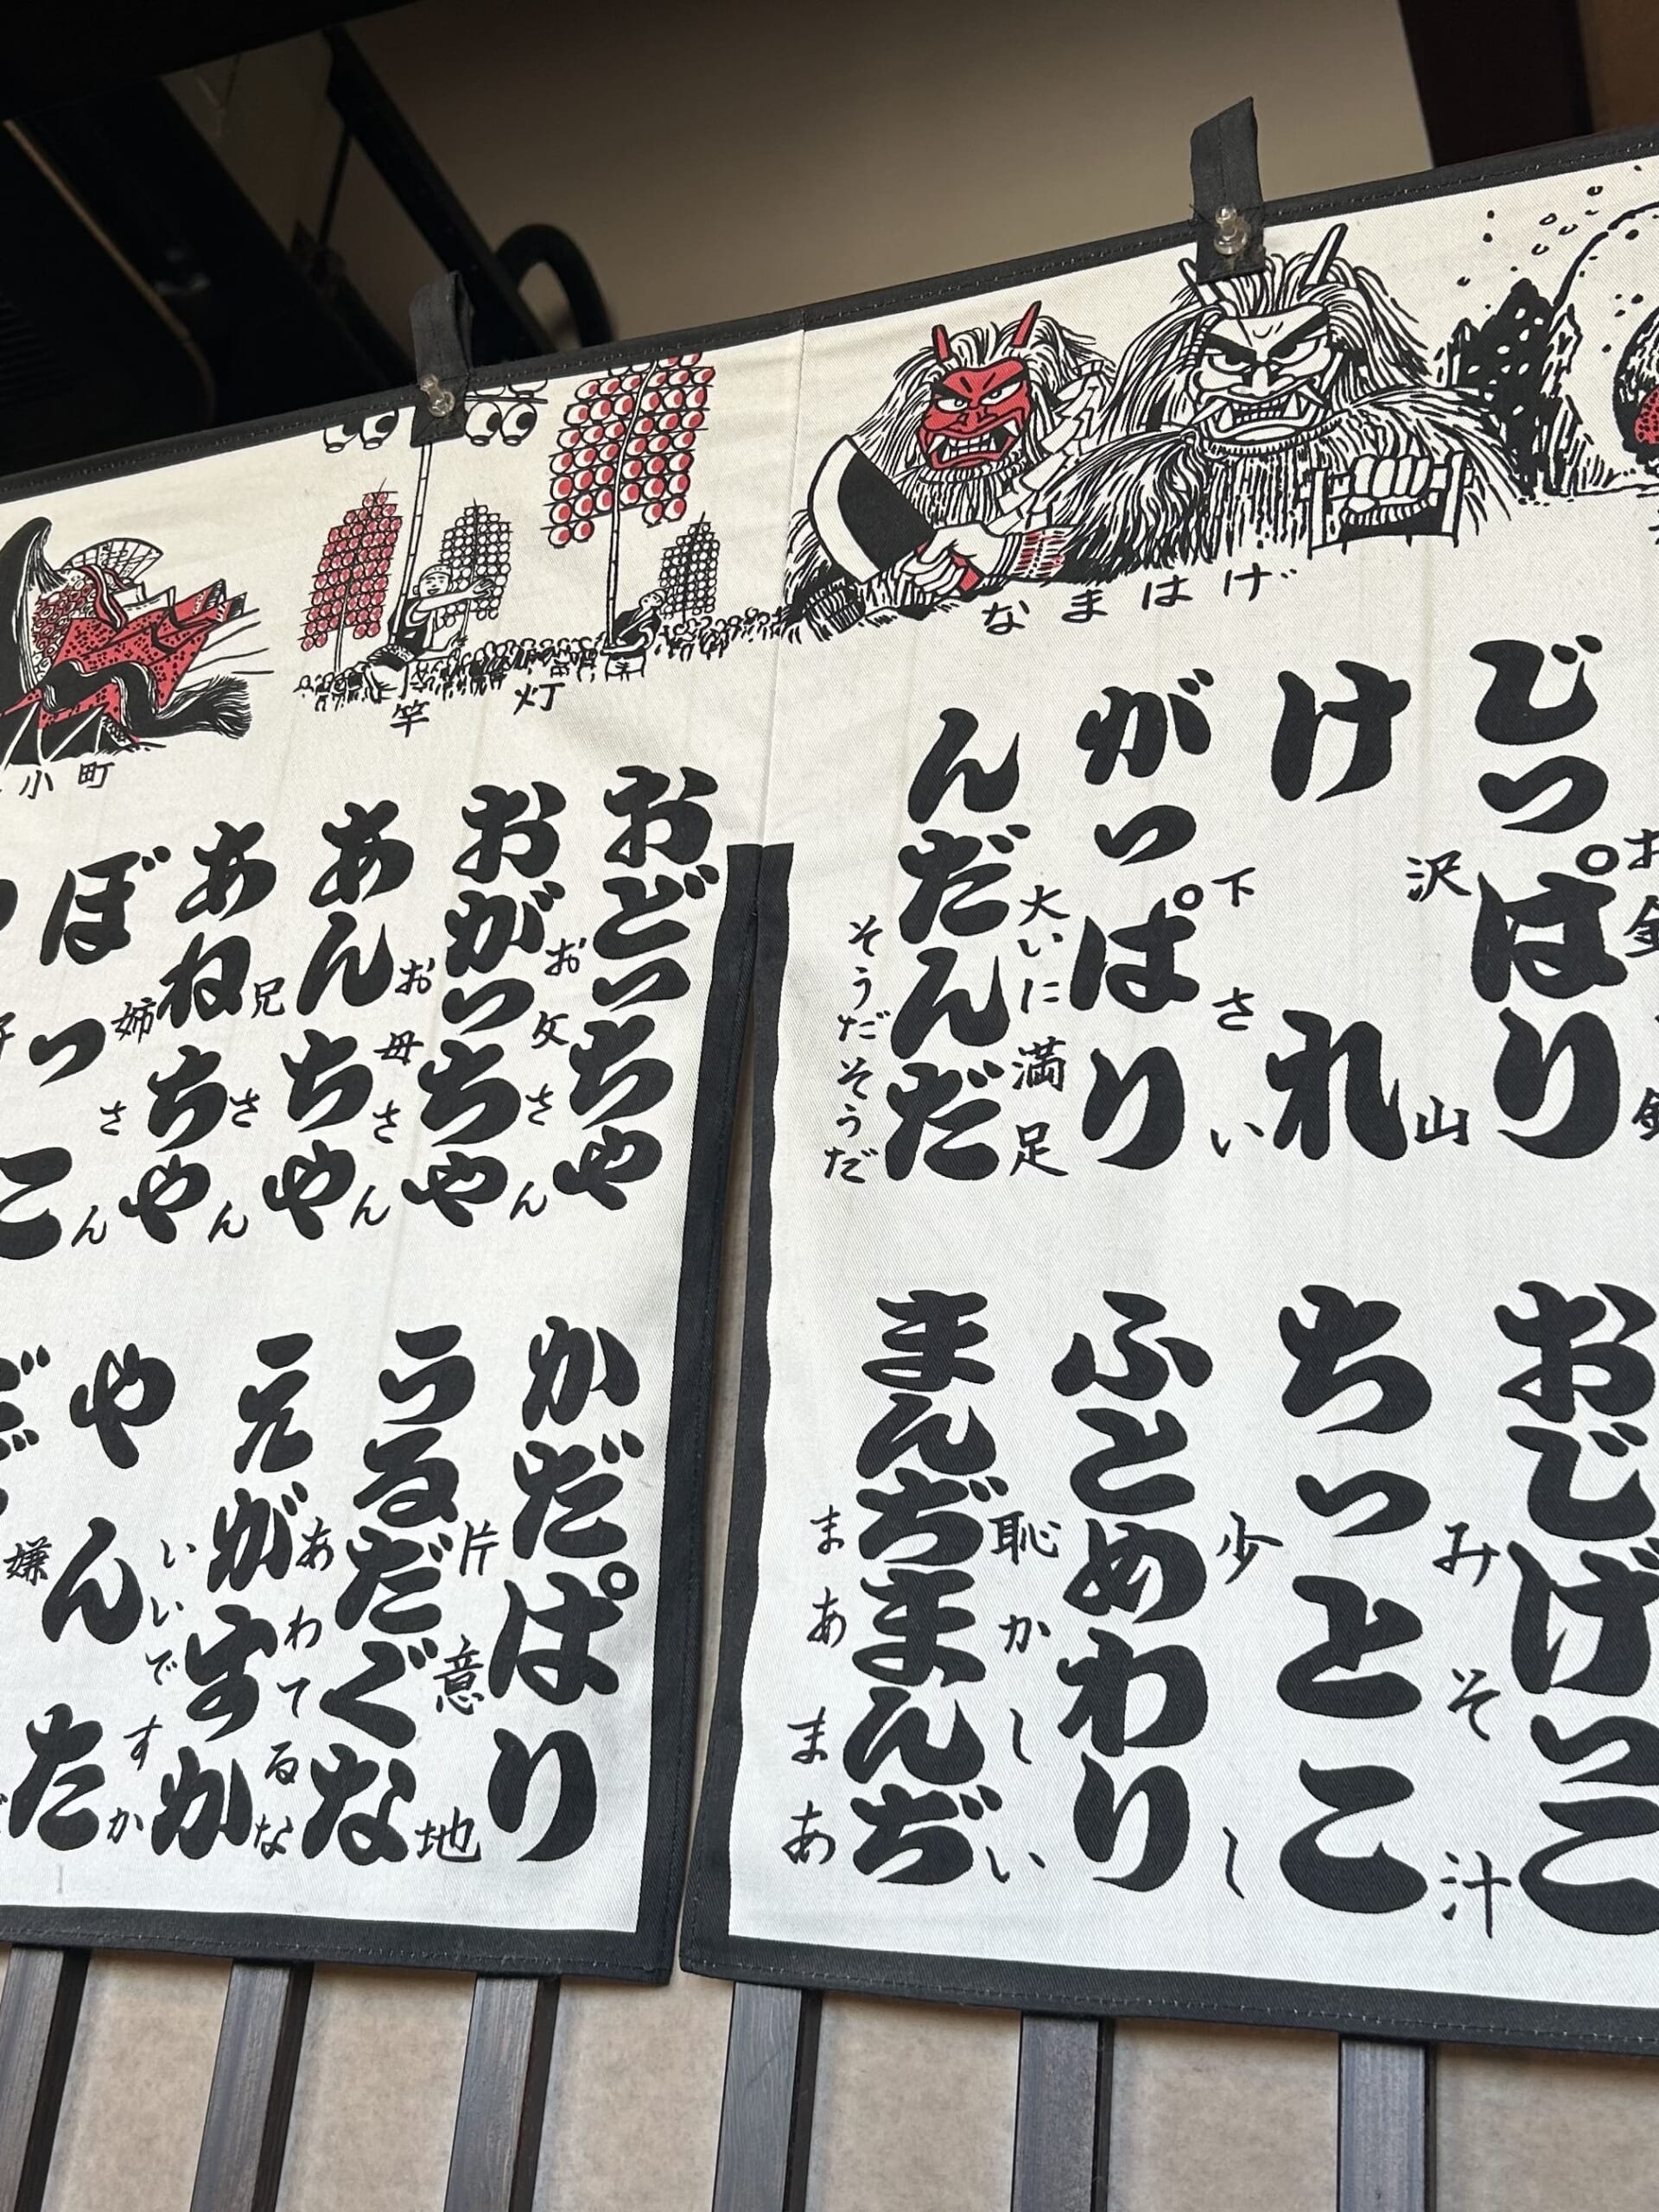 なまはげ
竿灯
小町
じっぱり
沢山
けれ
下さい
がっぱり
大いに満足
んだんだ
そうだそうだ
おじげっこ
みそ汁
ちっとこ
少し
ふとめわり
恥かしい
まんぢまんぢ
まあまあ
おどっちゃ
お父さん
おがっちゃ
お母さん
あんちゃ
兄さん
あねちゃ
姉さん
ぼっこ
かだぱり
片意地
うるだぐな
あわてるな
えがすか
いいですか
やんた
嫌